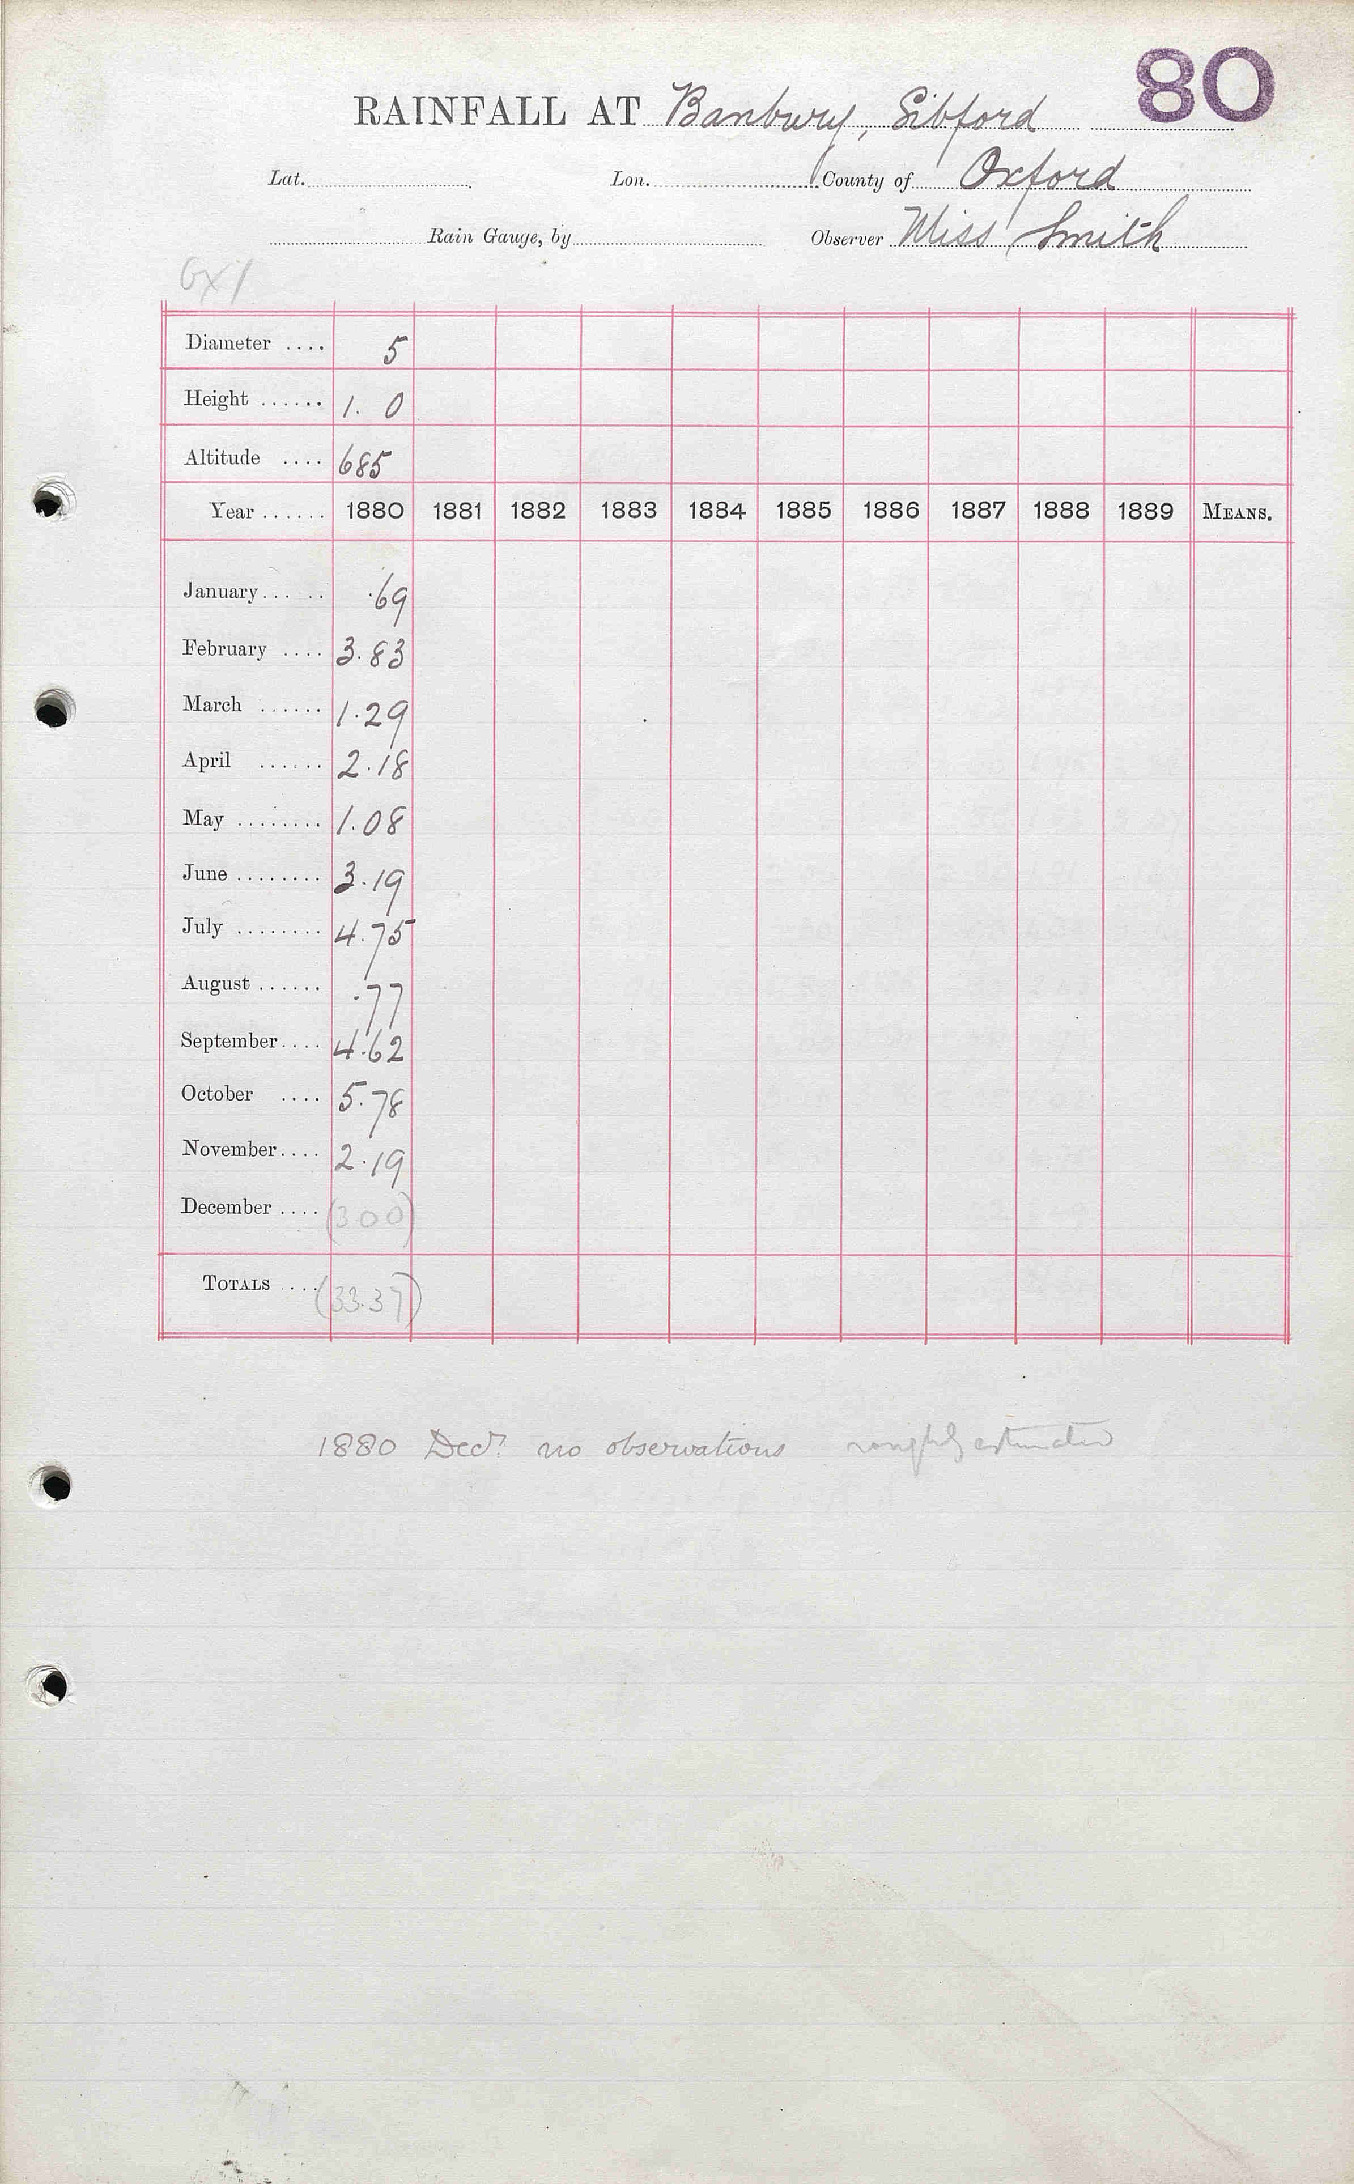 80
RAINFALL AT Banbury, Sibford
Lat. Lon. County of Oxford
Rain Gauge, by Observer Miss Smith
OX/
Diameter .... 5
Height ...... 1. 0
Altitude .... 685
Year ...... 1880 1881 1882 1883 1884 1885 1886 1887 1888 1889 MEANS.
January..... .69
February .... 3.83
March ...... 1.29
April ...... 2.18
May ........ 1.08
June ........ 3.19
July ........ 4.75
August ...... .77
September.... 4.62
October .... 5.78
November.... 2.19
December .... (3 00)
TOTALS .... (33.37)
1880 Decr. no observations roughly estimated